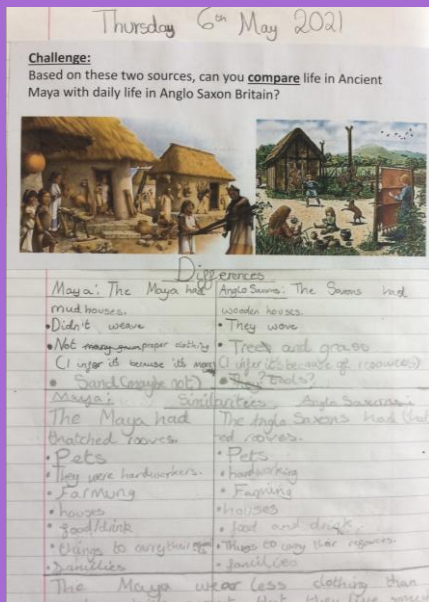 Thursday 6th May 2021
Challenge:
Based on these two sources, can you compare life in Ancient
Maya with daily life in Anglo Saxon Britain?
Differences
Maya: The Maya had
mud houses.
• Didn't weave
• Not proper clothing
(I infer it's because it's
• Sand (maybe not)
Anglo Saxons: The Saxons had
wooden houses.
• They wove
• Trees and grass
(I infer it's because of resources)
• tools?
Maya: Similarities Anglo Saxons:
The Maya had
thatched rooves.
• Pets
• They were hardworkers.
• Farming
• houses
• food/drink
• things to carry their
• Families
The Anglo Saxons had
rooves.
• Pets
• hardworking
• Farming
• houses
• food and drink.
• Things to carry their resources.
• families
The Maya wear less clothing than
that they live